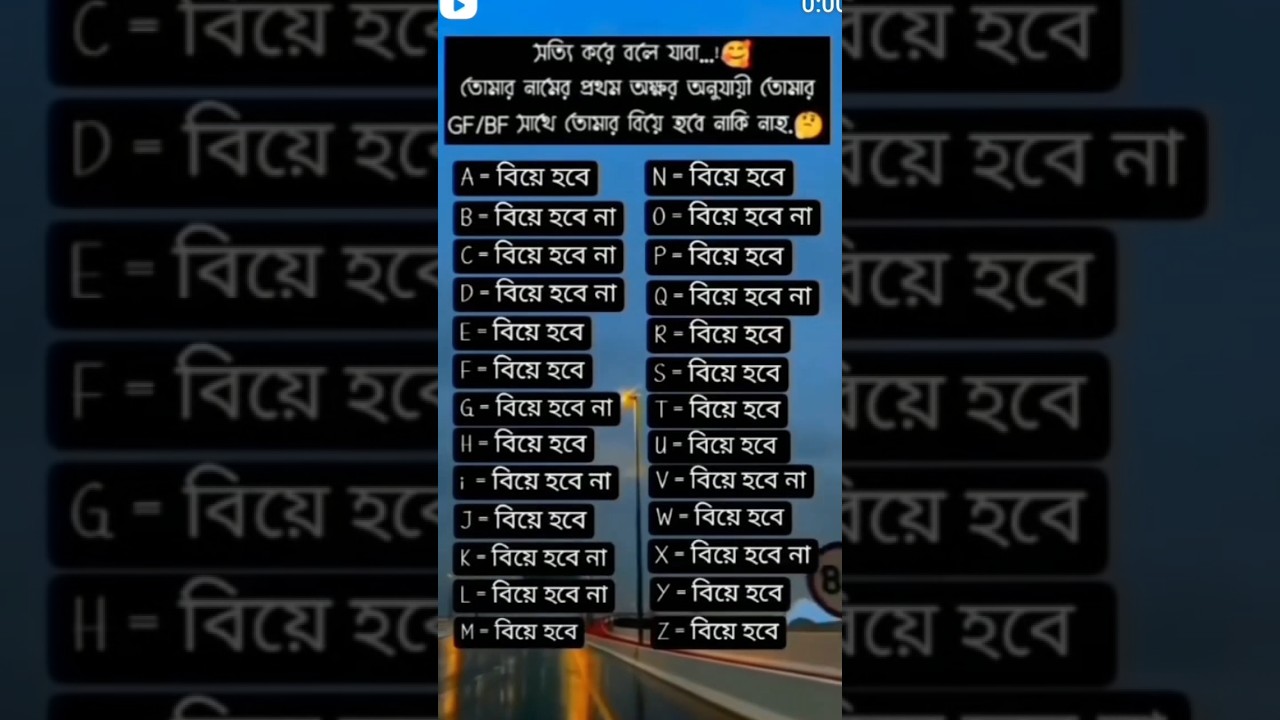 0:00
সত্যি করে বলে যাবা...!🥰
তোমার নামের প্রথম অক্ষর অনুযায়ী তোমার
GF/BF সাথে তোমার বিয়ে হবে নাকি নাহ.🤔
A = বিয়ে হবে
B = বিয়ে হবে না
C = বিয়ে হবে না
D = বিয়ে হবে না
E = বিয়ে হবে
F = বিয়ে হবে
G = বিয়ে হবে না
H = বিয়ে হবে
i = বিয়ে হবে না
J = বিয়ে হবে
K = বিয়ে হবে না
L = বিয়ে হবে না
M = বিয়ে হবে
N = বিয়ে হবে
O = বিয়ে হবে না
P = বিয়ে হবে
Q = বিয়ে হবে না
R = বিয়ে হবে
S = বিয়ে হবে
T = বিয়ে হবে
U = বিয়ে হবে
V = বিয়ে হবে না
W = বিয়ে হবে
X = বিয়ে হবে না
Y = বিয়ে হবে
Z = বিয়ে হবে